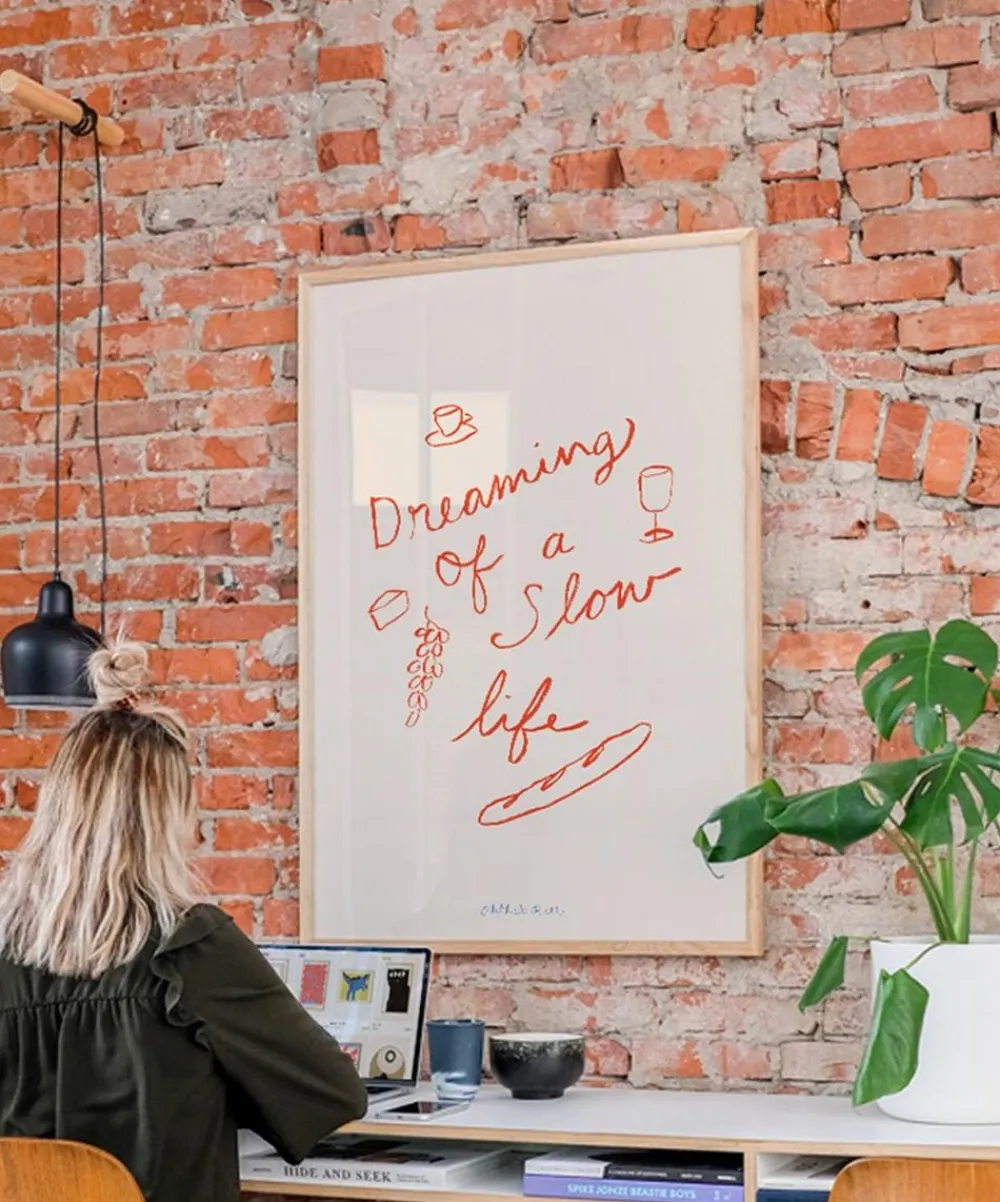 Dreaming
of a
Slow
life
HIDE AND SEEK
SPIKE JONZE BEASTIE BOYS